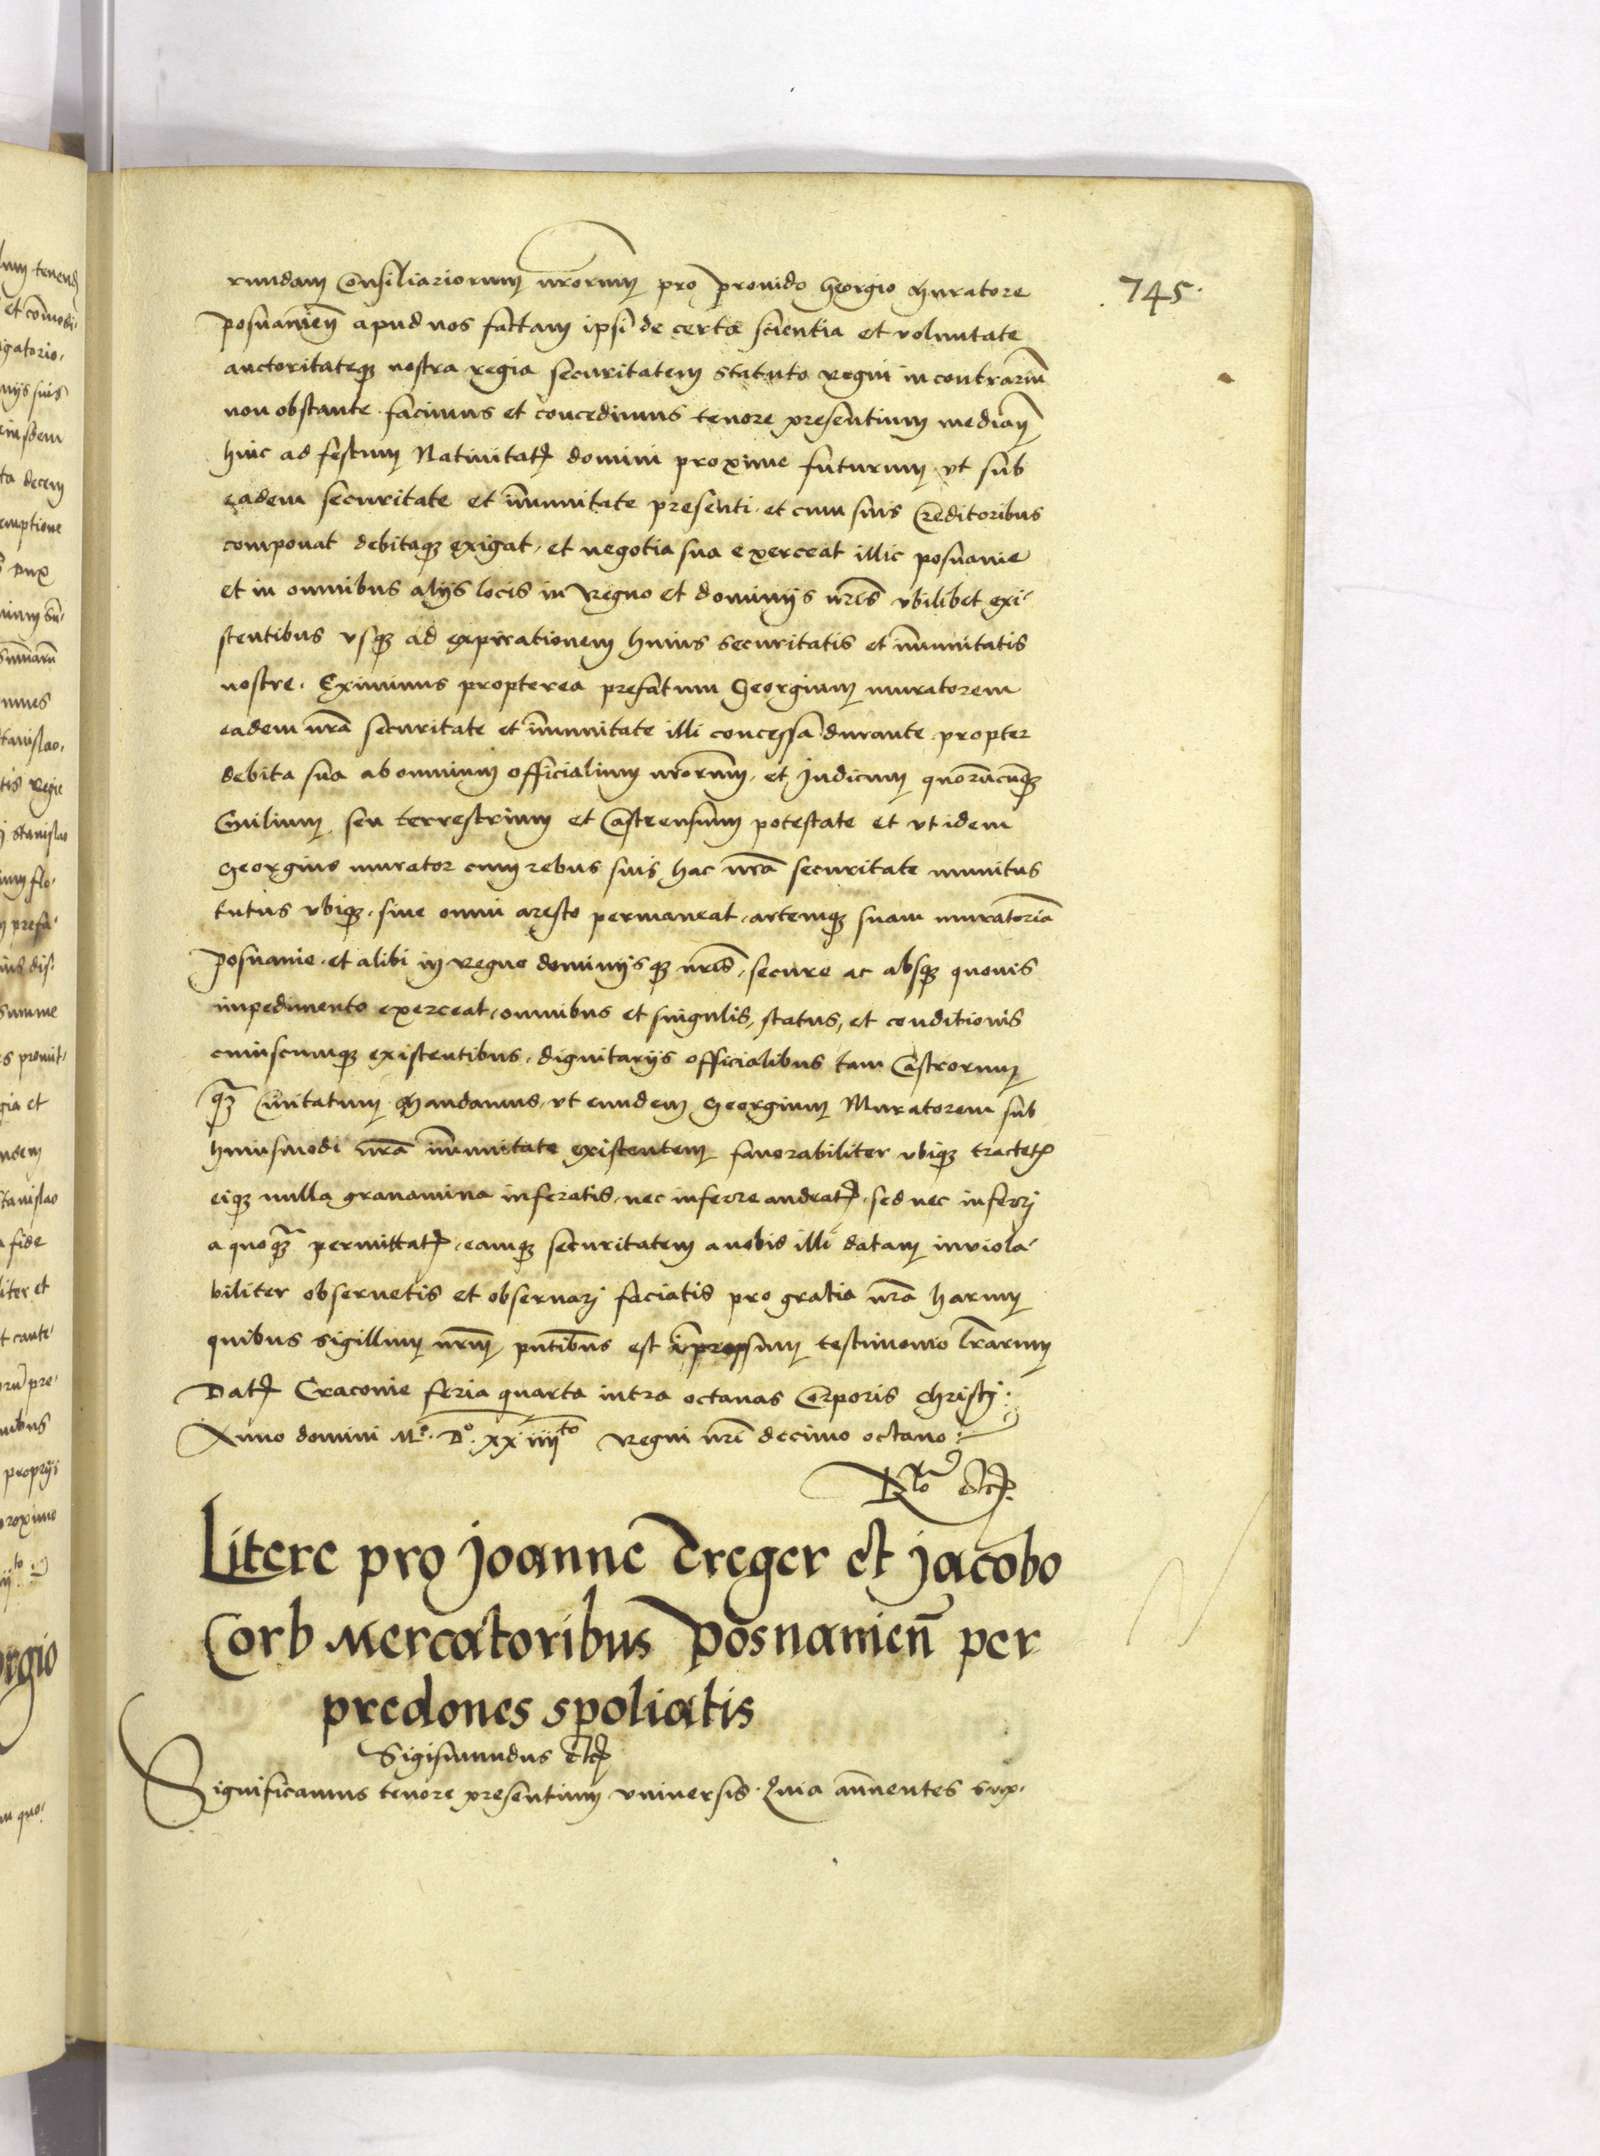 745.
rundam Consiliariorum nrorum pro prouido Georgio Muratore
posnanien apud nos factam ipsi de certa scientia et voluntate
auctoritateq nostra regia securitatem statuto regni in contrariu
non obstante facimus et concedimus tenore presentium median
hinc ad festum Natiuitat domini proxime futurum vt sub
eadem securitate et immunitate presenti et cum suis Creditoribus
componat debitaq exigat, et negotia sua exerceat illic posnanie
et in omnibus alijs locis in Regno et dominijs nris vbilibet exi-
stentibus vsq ad expirationem huius securitatis et immunitatis
nostre. Eximimus propterea prefatum Georgium muratorem
eadem nra securitate et immunitate illi concessa durante propter
debita sua ab omnium officialium nrorum, et Judicum quorucunq
Ciuilium seu terrestrium et Castrensium potestate et vt idem
Georgius murator cum rebus suis hac nra securitate munitus
tutus vbiq, sine omni aresto permaneat, artemq suam muratoria
Posnanie et alibi in regno dominijsq nris, secure ac absq quouis
impedimento exerceat, omnibus et singulis, status, et conditionis
cuiuscumq existentibus, dignitarijs officialibus tam Castrorum
q Ciuitatum Mandamus, vt eundem Georgium Muratorem sub
huiusmodi nra immunitate existentem fauorabiliter vbiq tractet
eiq nulla grauamina inferatis, nec inferre audeat, sed nec inferrj
a quoq permittat, eamq securitatem a nobis illi datam inviola-
biliter obseruetis et obseruarj faciatis pro gratia nra harum
quibus sigillum nrum pntibus est impressum testimonio lrarum
Dat Cracouie feria quarta intra octauas Corporis Christj.
Anno domini Mo. Do. XX iiijto Regni nri decimo octauo:
Rlo etc
Litere pro Joanne Dreger et Jacobo
Corb Mercatoribus Posnanien per
predones spoliatis
Sigismundus etc
Significamus tenore presentium vniuersis. Quia annuentes sup-